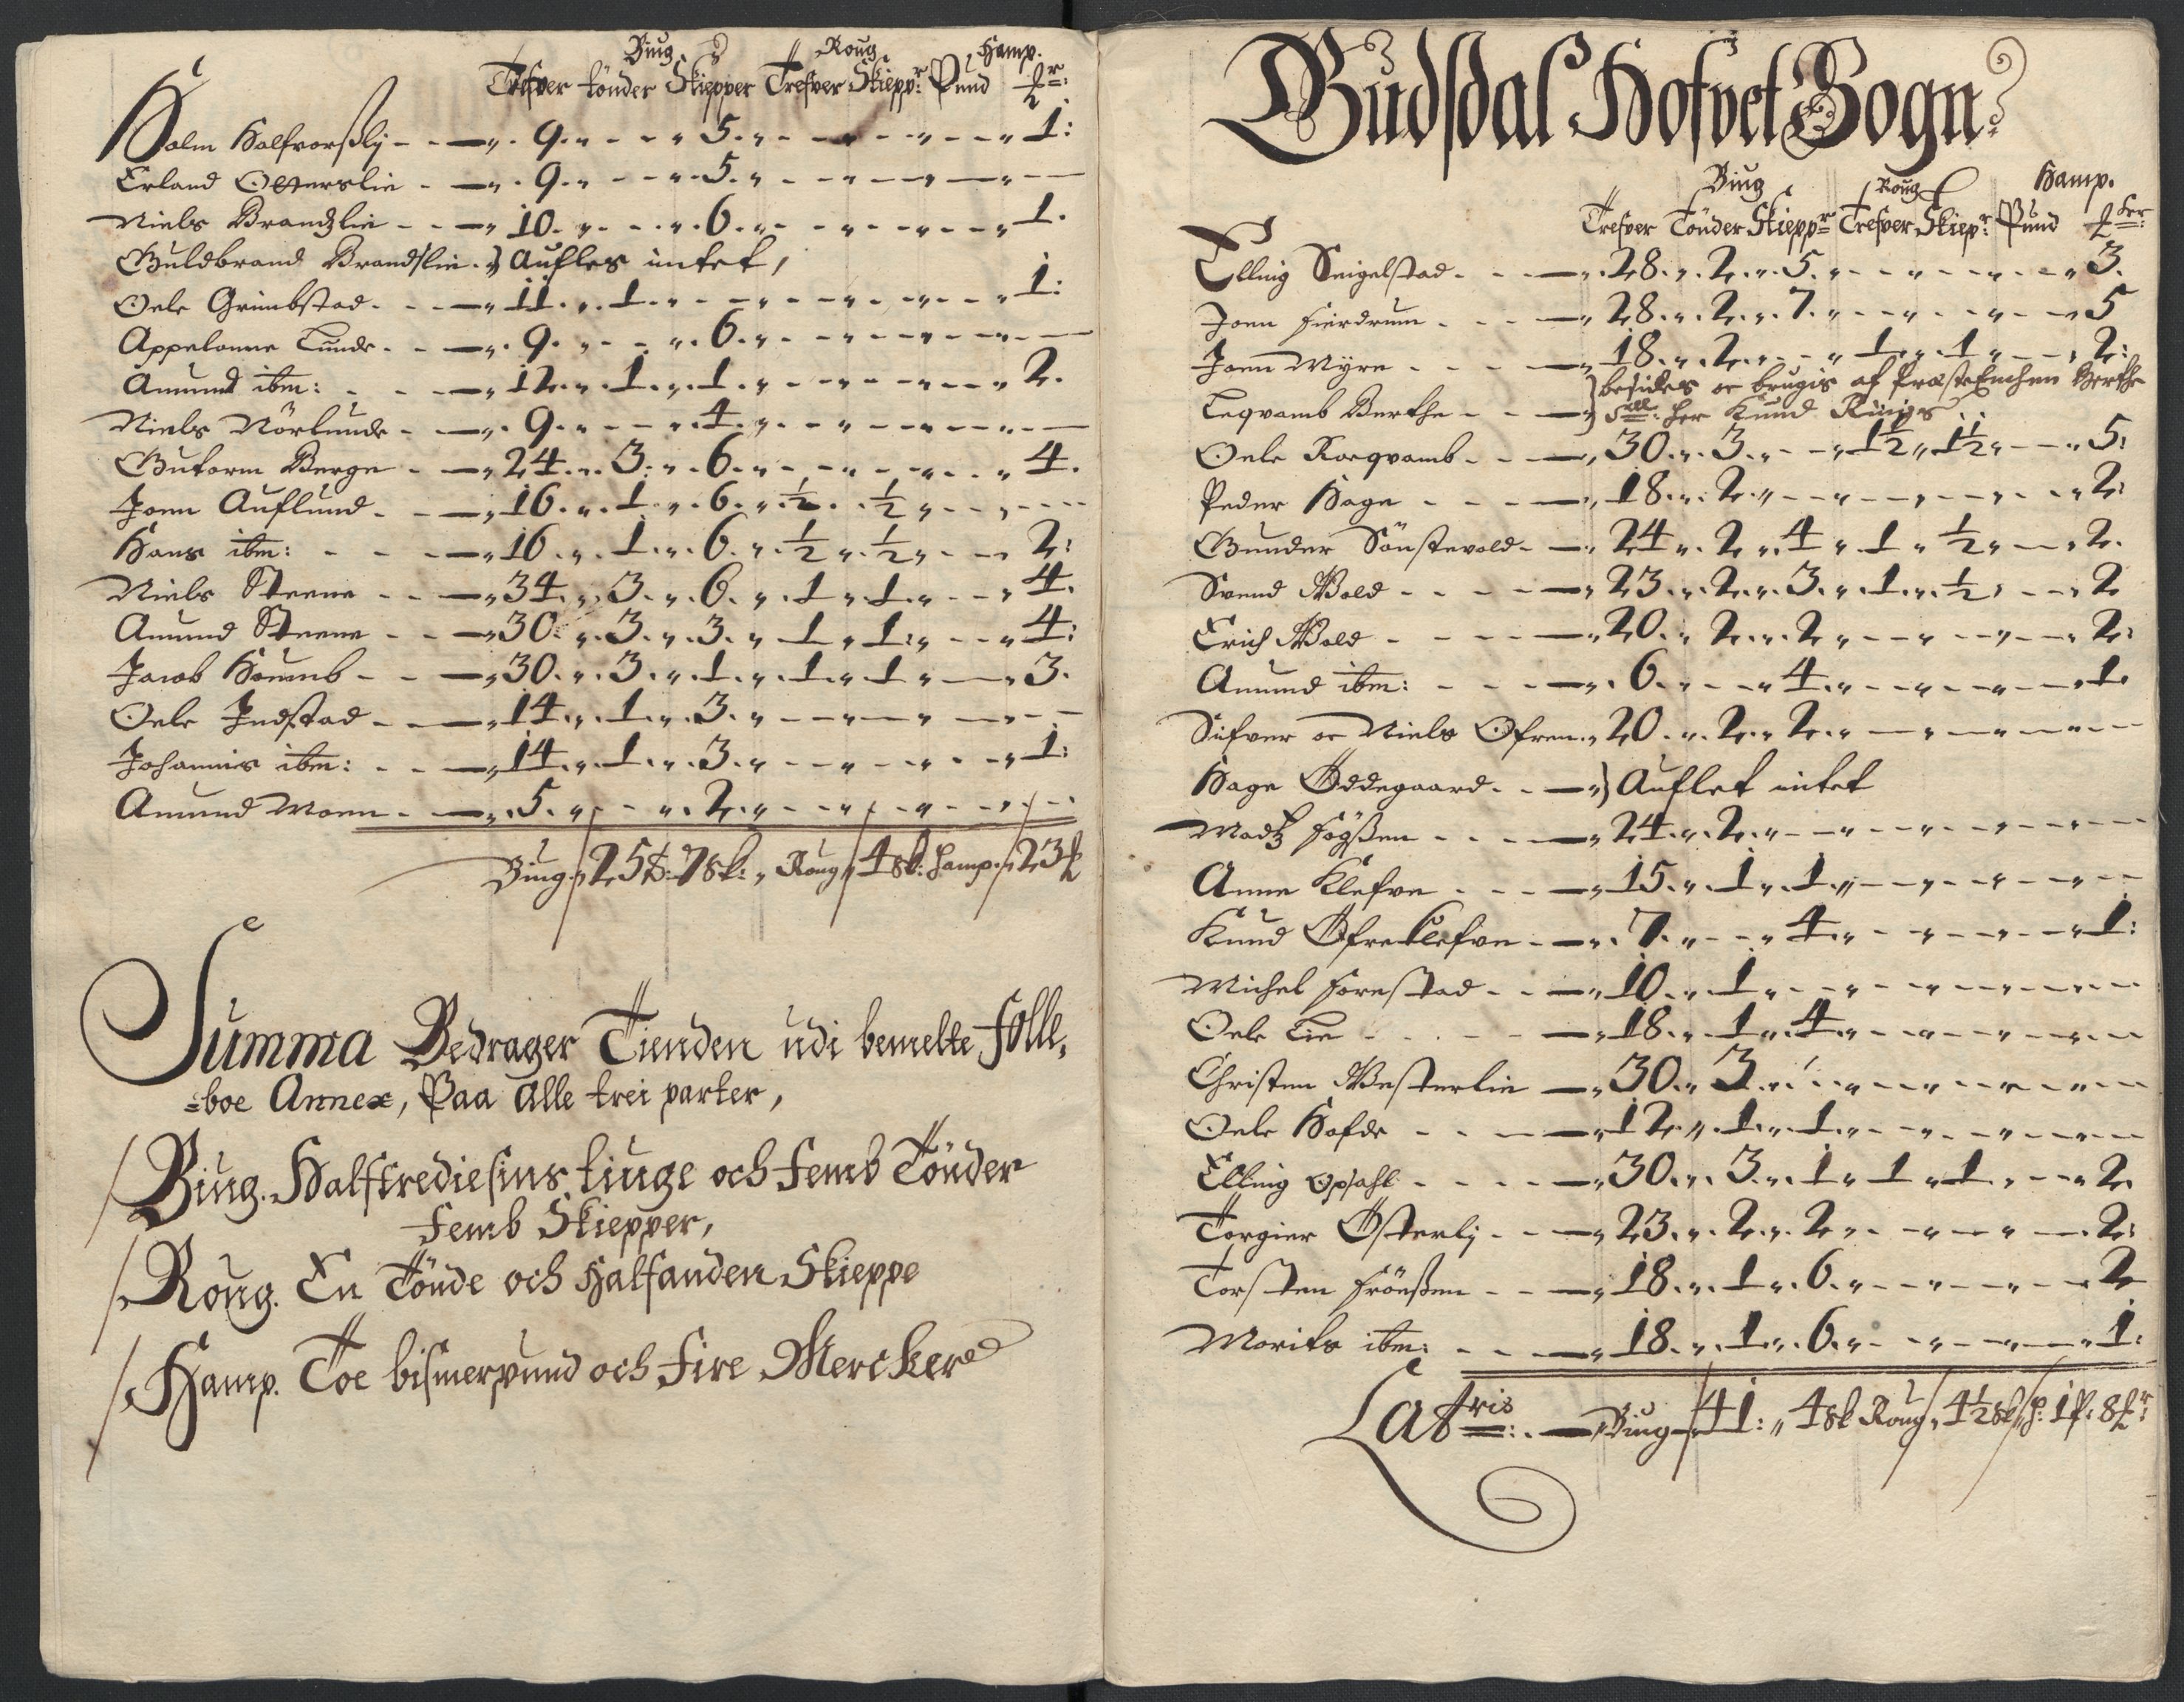 Biug Roug Hamp.
Trefver tönder Skiepper Trefver Skiepr: Pund
Holm Halfvorßlij - - 9 - - 5 - - - - 1:
Erland Otterslie - - 9 - - 5 - - - -
Niels Brandzlie - - 10 - - 6 - - - - 1.
Guldbrand Brandslie Aufles intet,
Oele Grimbstad - - 11 . 1 - - - - - 1:
Appelonne Lunde - - 9 - - 6 - - - -
Amund ibm: - - 12 . 1 . 1 - - - - 2.
Niels Nörlunde - - 9 - - 4 - - - -
Gutorm Berge - - 24 . 3 . 6 - - - - 4.
Joen Auflund - - 16 . 1 . 6 . ½ . ½ - - -
Hans ibm: - - 16 . 1 . 6 . ½ . ½ - - 2:
Niels Steene - - 34 . 3 . 6 . 1 . 1 - - 4.
Amund Steene - - 30 . 3 . 3 . 1 . 1 - - 4:
Jacob - - 30 . 3 . 1 . 1 . 1 - - 3.
Oele Indstad - - 14 . 1 . 3 - - - -
Johannis ibm: - - 14 . 1 . 3 - - - - 1:
Amund Moen - - 5 - - 2 - - - -
Biug 25 t: 7 sk: Roug 4 sk: Hamp. 23
Summa Bedrager Tienden udi bemelte Folle,
=boe Annex, Paa Alle trei parter,
Biug. Halftrediesins tiuge och Femb Tönder
Femb Skiepper,
Roug. En Tönde och Halfanden Skieppe
Hamp. Toe bismerpund och Fire Mercker
Gudsdal Hofvet Sogn
Biug Roug Hamp.
Trefver Tönder Skieppr Trefver Skiepr: Pund
Elling Seigelstad - - 28 . 2 . 5 - - - - 3.
Joen Fierdrum - - 28 . 2 . 7 - - - - 5
Joen Myre - - 18 . 2 - - 1 . 1 - - 2:
besides oc brugis af Præste Enchen Berthe
Leqvamb Berthe - - Sall: Her Knud
Oele Roeqvamb - - 30 . 3 - - 1½ 1½ - - 5:
Peder Hage - - 18 . 2 - - - - - 2:
Gunder Sönstevold - - 24 . 2 . 4 . 1 . ½ - - 2.
Svend Wold - - 23 . 2 . 3 . 1 . ½ - - 2
Erich Wold - - 20 . 2 . 2 - - - - 2:
Amund ibm: - - 6 - - 4 - - - - 1.
Sifver oc Niels Ofren 20 . 2 . 2 - - - -
Hage Öddegaard - - Auflet intet
Madtz - - 24 . 2 - - - - -
Anne Klefve - - 15 . 1 . 1 - - - -
Knud Öfreklefve - - 7 - - 4 - - - - 1:
Michel Forestad - - 10 . 1 - - - - -
Oele Lie - - 18 . 1 . 4 - - - -
Christen Westerlie - - 30 . 3 - - - - -
Oele Hofde - - 12 . 1 . 1 - - - -
Elling Opsahl - - 30 . 3 . 1 . 1 . 1 - - 2.
Torgier Österlj - - 23 . 2 . 2 - - - - 2:
Torsten Fröeßen - - 18 . 1 . 6 - - - - 2
Morits ibm: - - 18 . 1 . 6 - - - - 1:
Latris: Biug 41: 4 sk Roug 4½ sk H: 1 p: 8